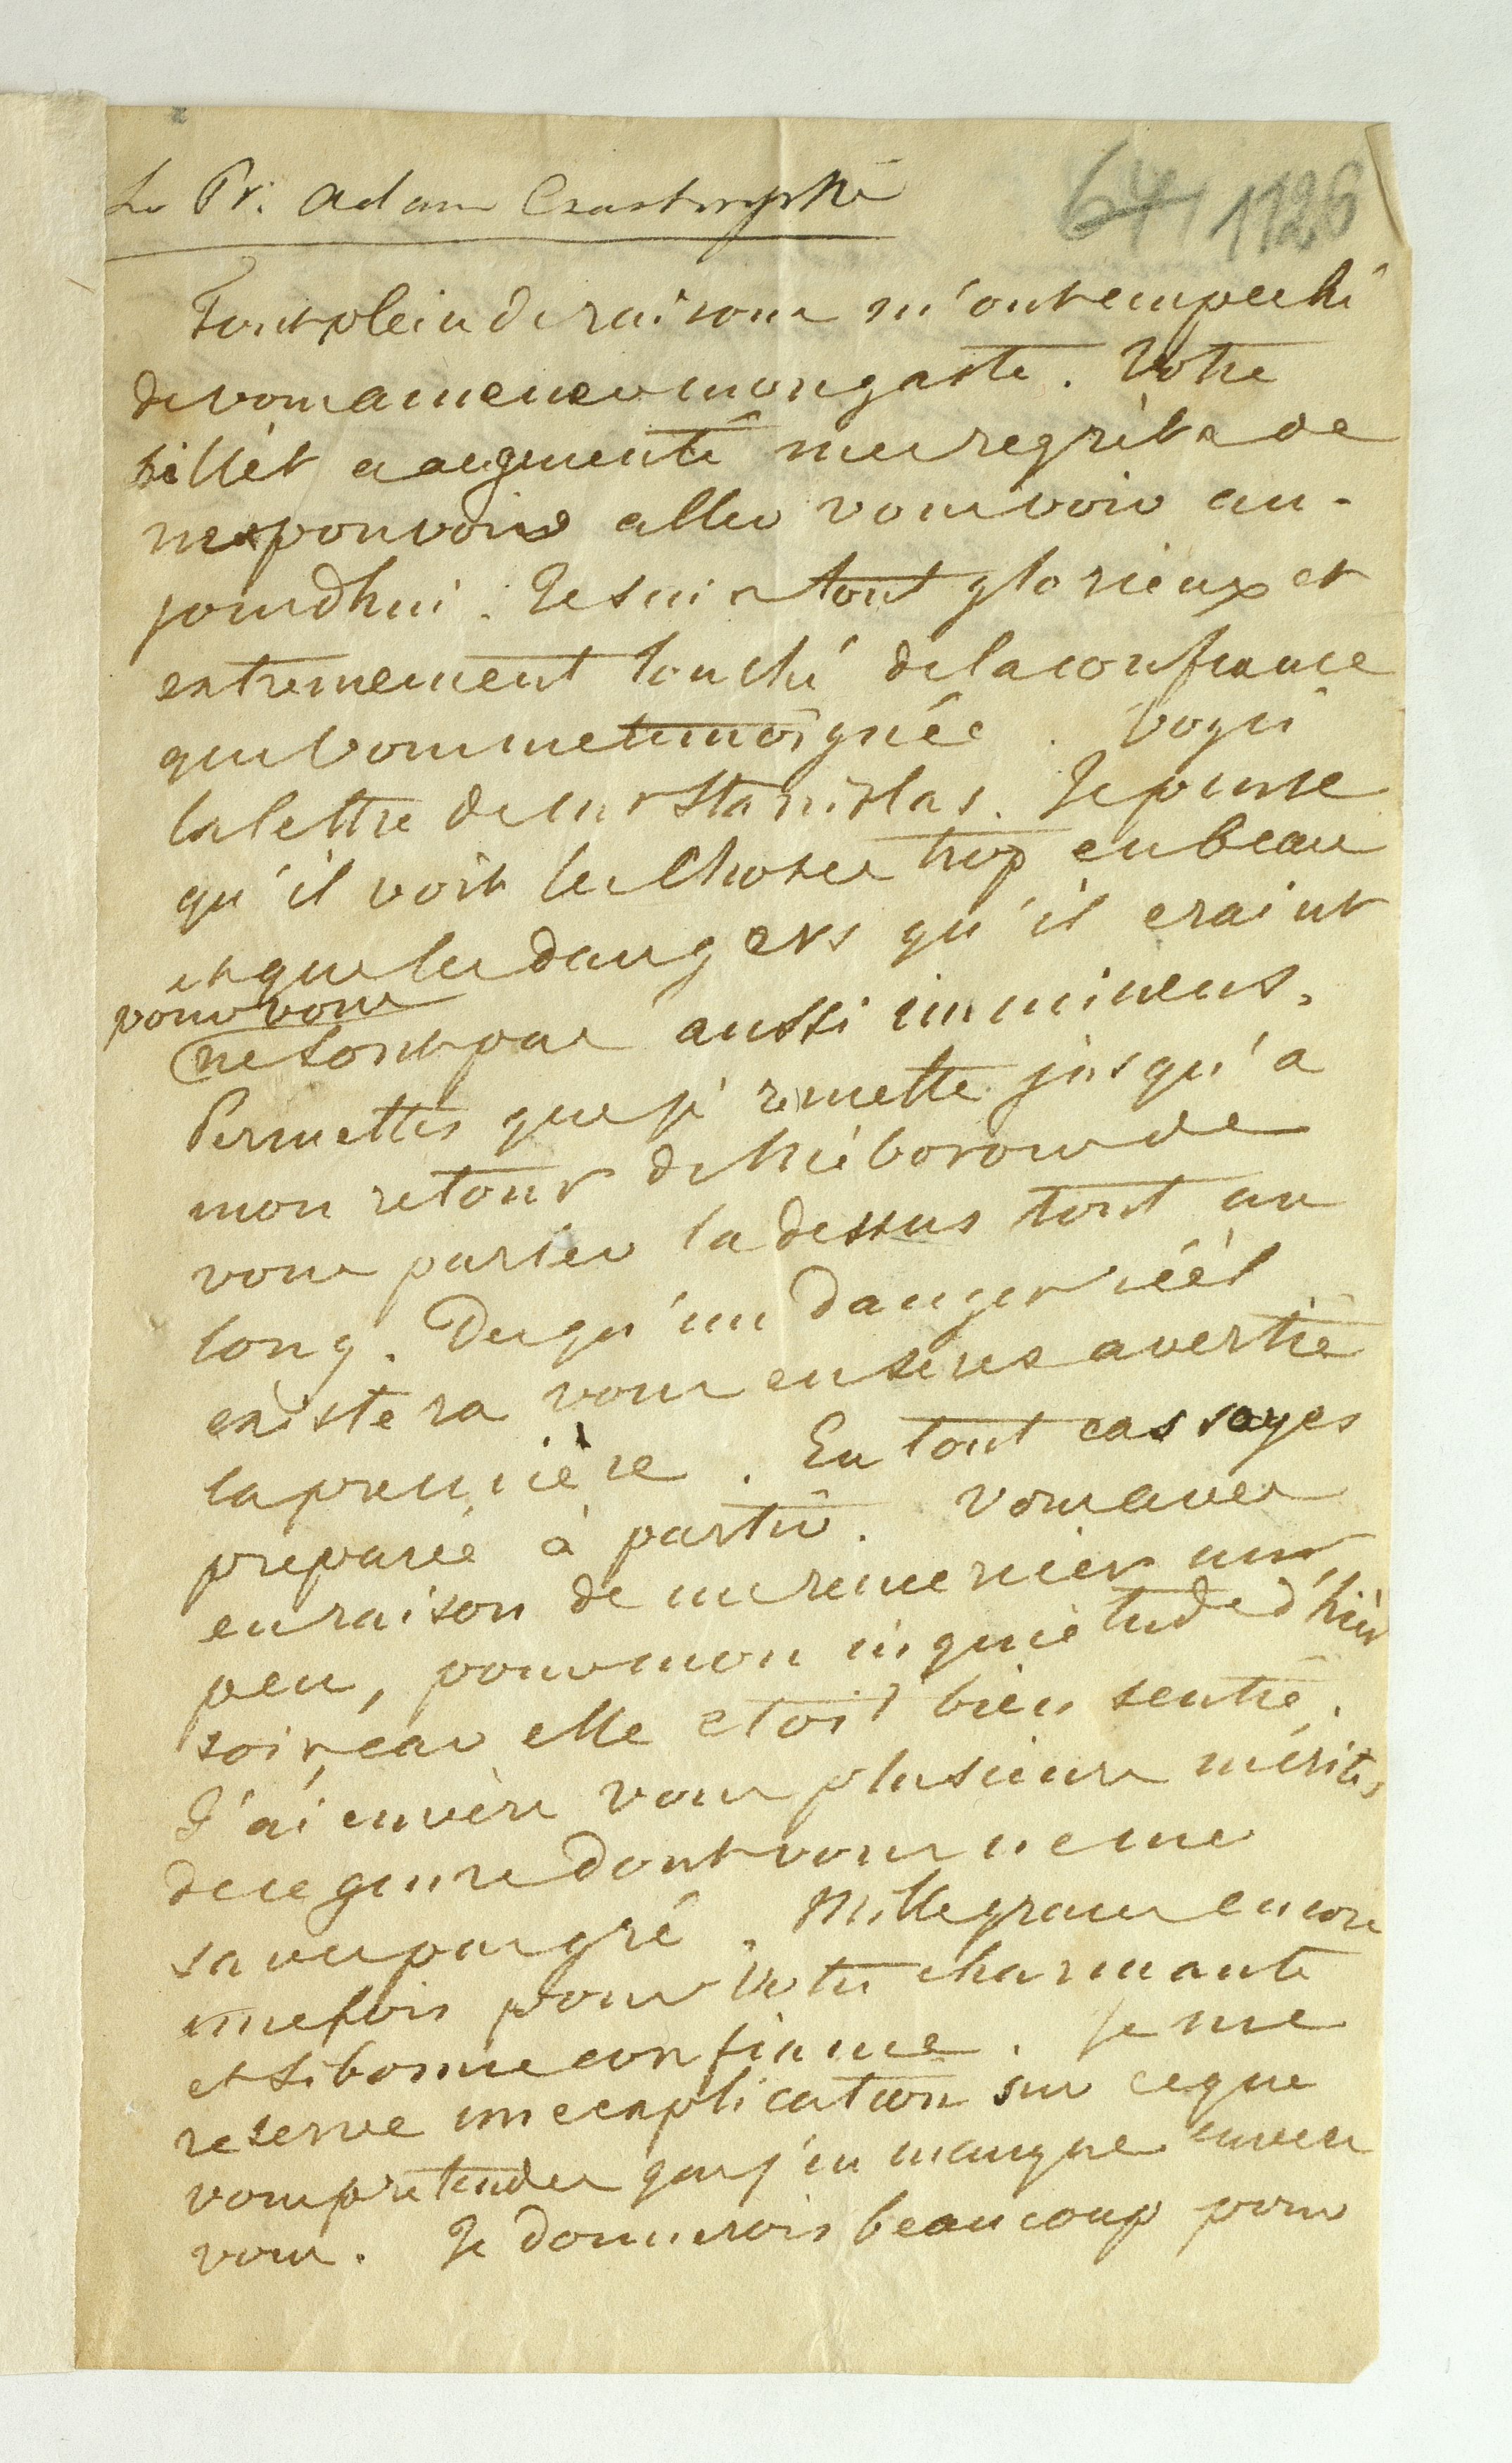 Le Pr. Adam Czartoryski
641 1126
Tout plein de raisons m'ont empeché
de vous amener mon gaste. Votre
billèt a augmenté mes regrèts de
ne pouvoir aller vous voir au-
jourdhui. Je suis tout glorieux et
extremement touché de la confiance
que vous me temoignéé. Voyci
la lettre de Mr Stanislas. Je pense
qu'il voit les choses trop en beau
et que les dangers qu'il craint
pour vous
ne sont pas aussi imminens.
Permettes que je remette jusqu'a
mon retour de Nieborow de
vous parler la dessus tout au
long. Des qu'un danger réèl
existera vous en seres avertie
la première. En tout cas soyes
preparée à partir. Vous aves
eu raison de me remercier un
peu, pour mon inquietude d'hier
soir, car elle etoit bien sentie.
J'ai envèrs vous plusieurs mérites
de ce genre dont vous ne me
saves pas gré. Mille graces encore
une fois pour Votre charmante
et si bonne confiance. Je me
reserve une explication sur ce que
vous pretendes que j'en manque envers
vous. Je donnerois beaucoup pour